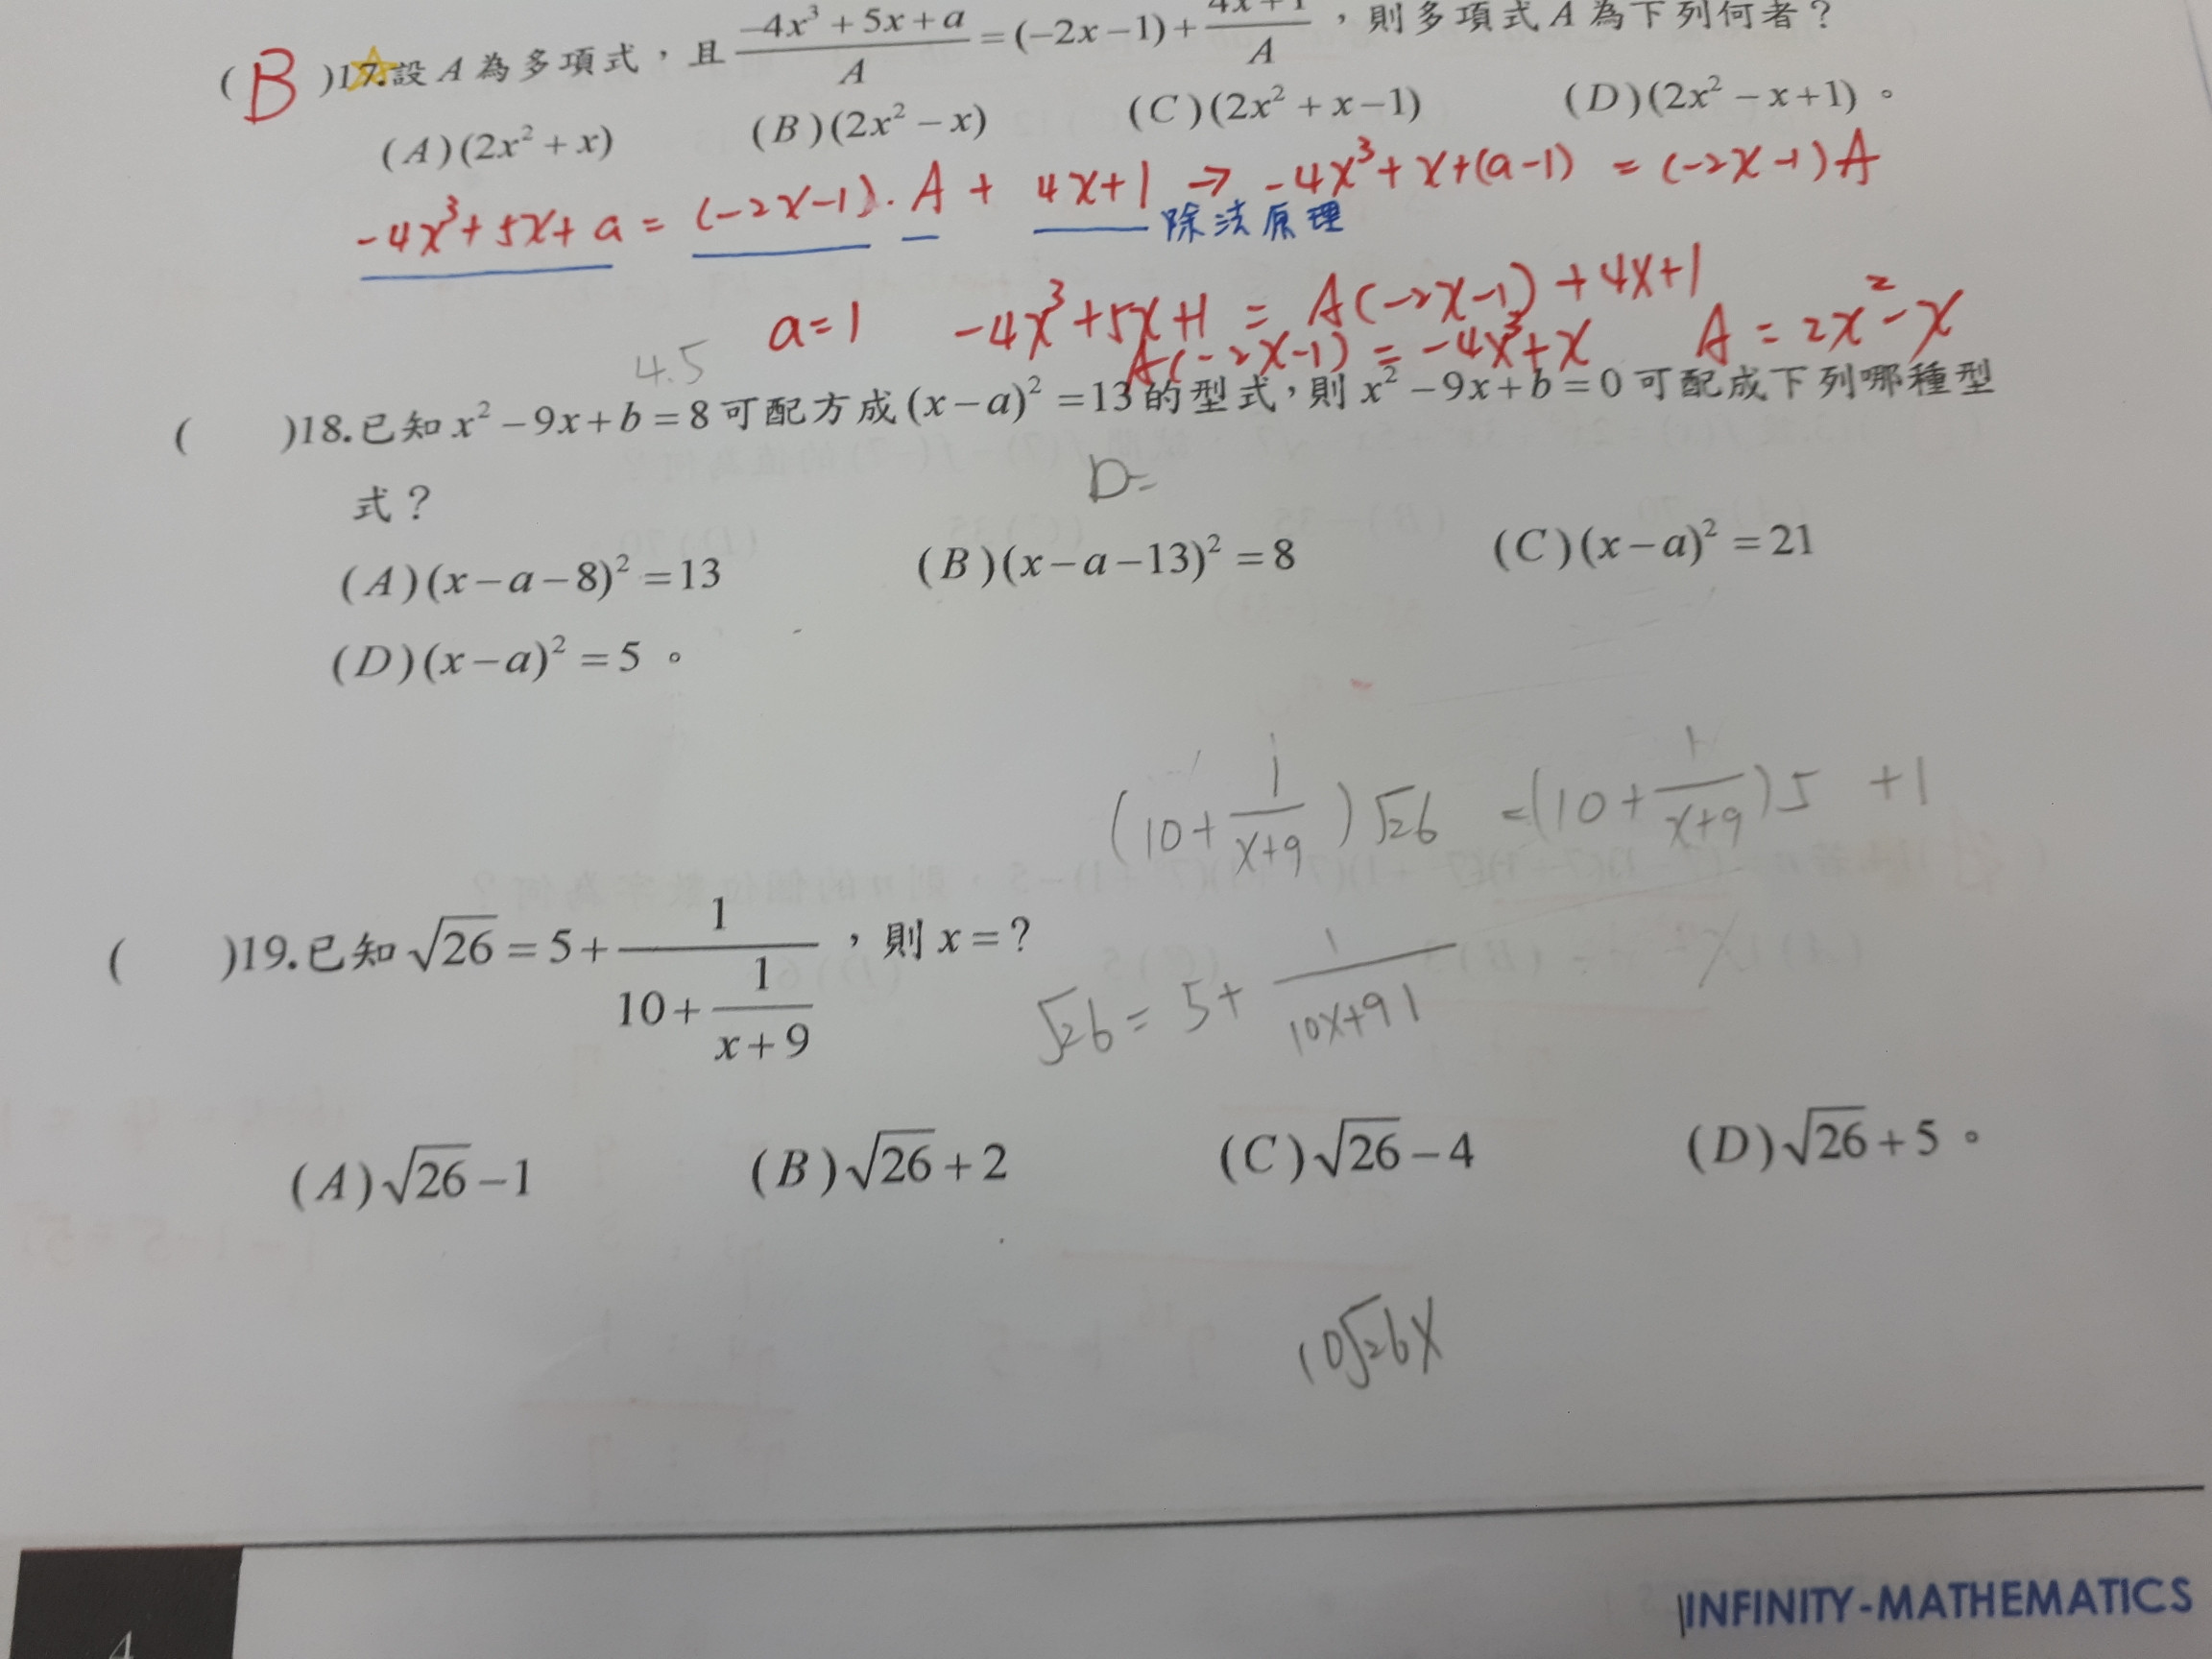 ( B )17.設 A 為多項式，且 \frac{-4x³+5x+a}{A} = (-2x-1) + \frac{4x+1}{A}，則多項式 A 為下列何者？
(A)(2x²+x) (B)(2x²-x) (C)(2x²+x-1) (D)(2x²-x+1)。
-4x³+5x+a = (-2x-1)·A + 4x+1 → -4x³+x+(a-1) = (-2x-1)A
除法原理
a=1 -4x³+5x+1 = A(-2x-1)+4x+1
A(-2x-1) = -4x³+x A = 2x²-x
4.5
( )18.已知 x²-9x+b=8 可配方成 (x-a)²=13 的型式，則 x²-9x+b=0 可配成下列哪種型
式？
b=
(A)(x-a-8)²=13 (B)(x-a-13)²=8 (C)(x-a)²=21
(D)(x-a)²=5。
(10+\frac{1}{x+9})√26 = (10+\frac{1}{x+9})5 +1
( )19.已知 √26 = 5+\frac{1}{10+\frac{1}{x+9}}，則 x=？
√26 = 5+\frac{1}{10x+91}
(A)√26-1 (B)√26+2 (C)√26-4 (D)√26+5。
10√26x
4
INFINITY-MATHEMATICS